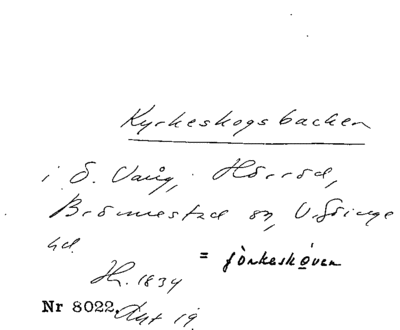 Kyrkeskogsbacken
i Ö. Vång, Hörröd,
Brönnestad sn, V. Göinge
hd.
= förkeskoven
Hr. 1834
Nr 8022. Akt 19.